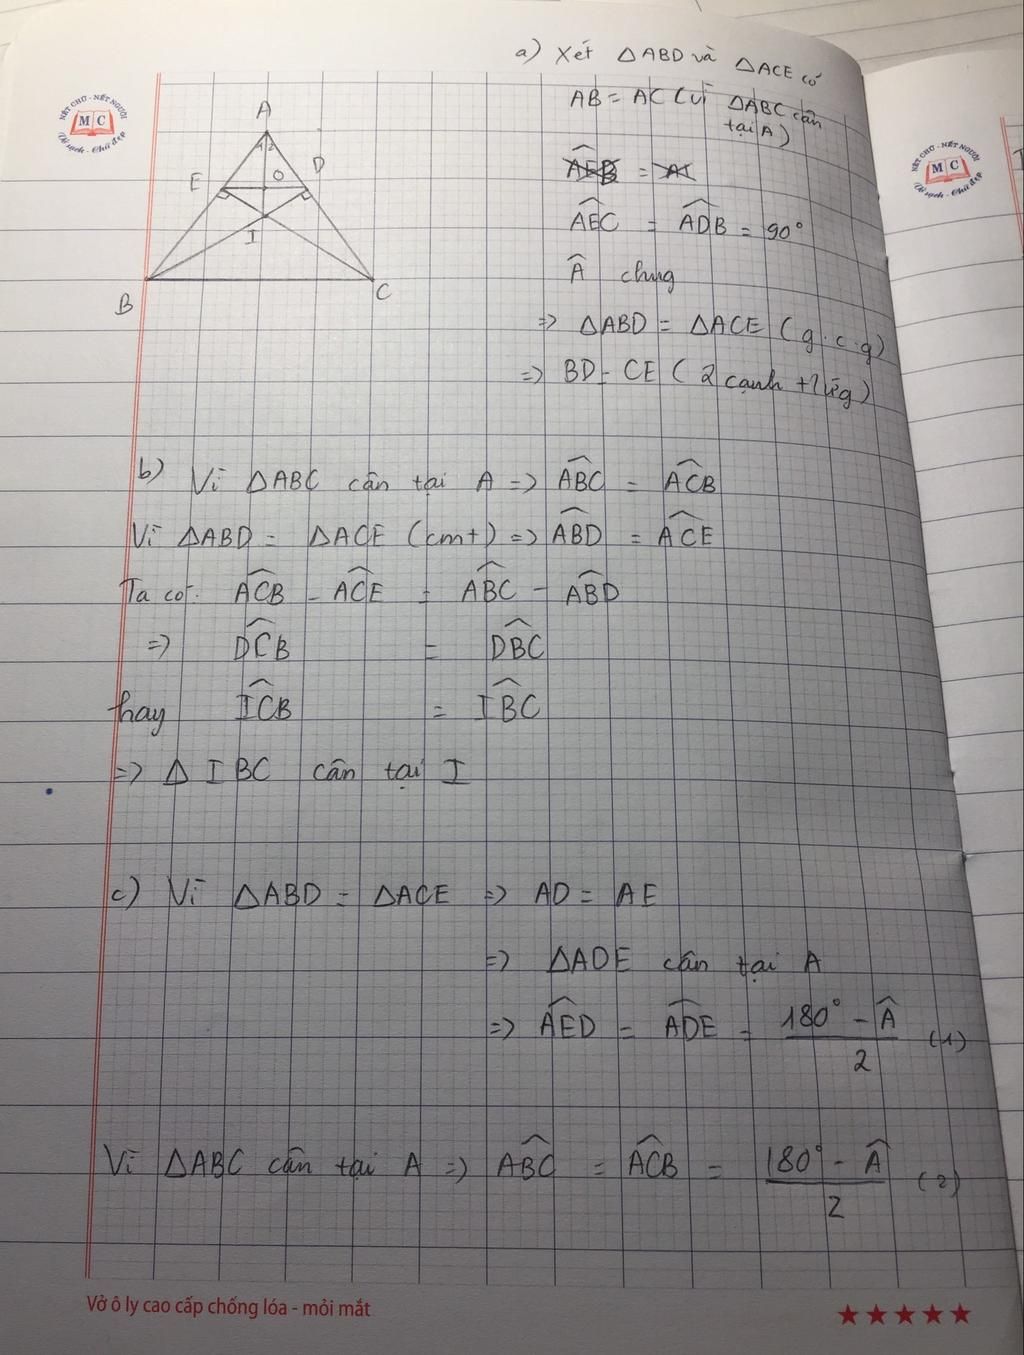 NÉT CHỮ - NẾT NGƯỜI
MC
Vở sạch - Chữ đẹp
A
1 2
E
O
D
I
B
C
a) Xét ΔABD và ΔACE có
AB = AC (vì ΔABC cân
tại A)
AEC = ADB = 90°
Â chung
=> ΔABD = ΔACE (g.c.g)
=> BD = CE (2 cạnh tư)
b) Vì ΔABC cân tại A => ABC = ACB
Vì ΔABD = ΔACE (cmt) => ABD = ACE
Ta có: ACB - ACE = ABC - ABD
=> DCB = DBC
hay ICB = IBC
=> Δ IBC cân tại I
c) Vì ΔABD = ΔACE => AD = AE
=> ΔADE cân tại A
=> AED = ADE = (180° - Â)/2 (1)
Vì ΔABC cân tại A => ABC = ACB = (180° - Â)/2 (2)
Vở ô ly cao cấp chống lóa - mỏi mắt
NÉT CHỮ - NẾT NGƯỜI
MC
Vở sạch - Chữ đẹp